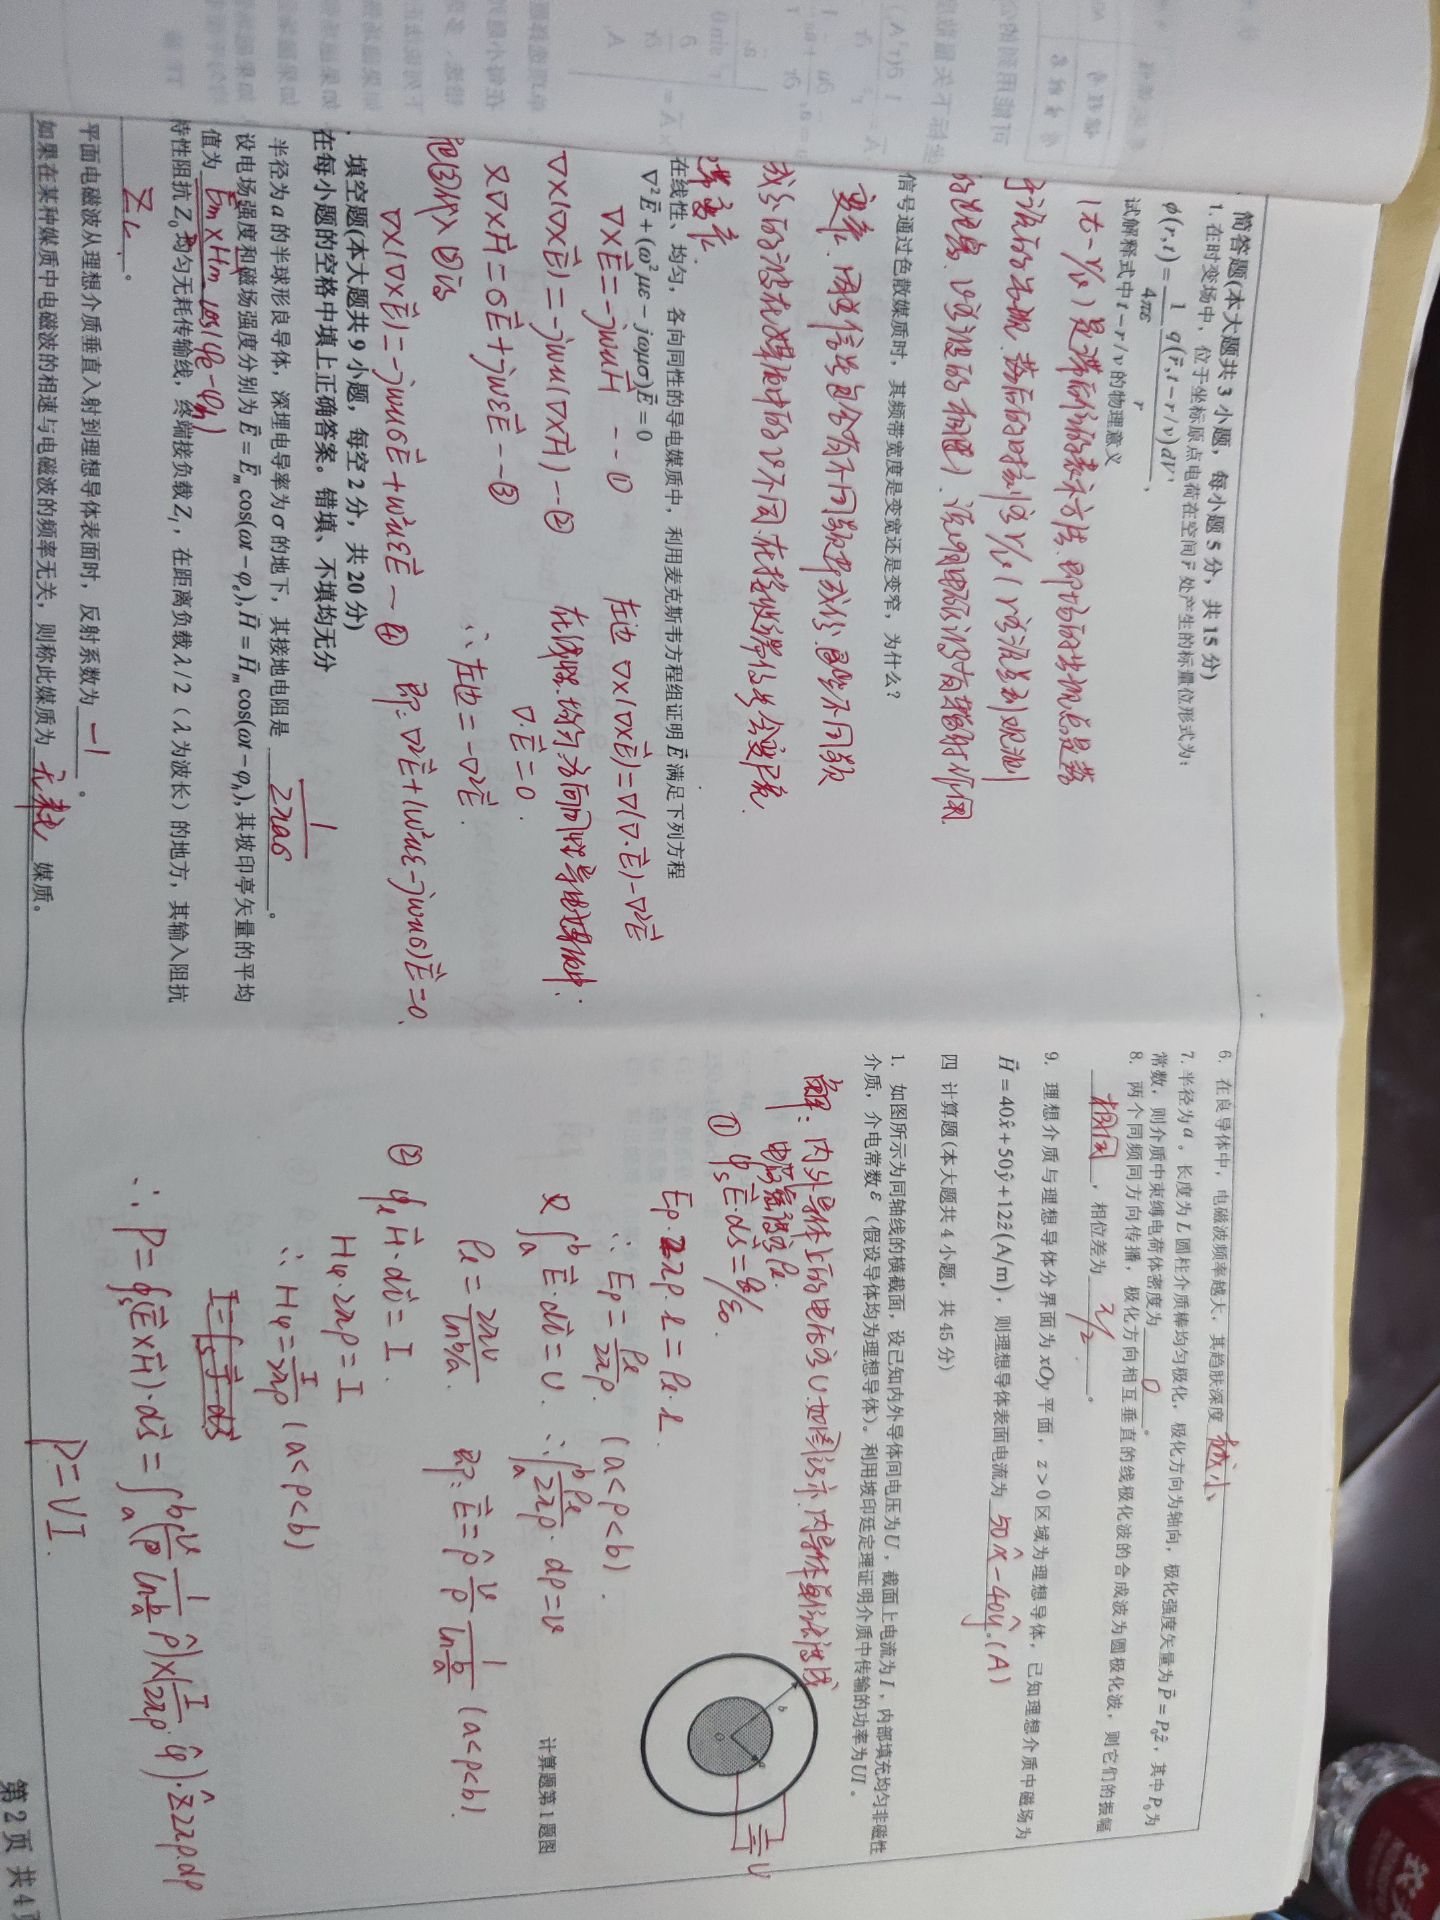 简答题(本大题共 3 小题，每小题 5 分，共 15 分)
1. 在时变场中，位于坐标原点电荷在空间 r̄ 处产生的标量位形式为：
φ(r,t) = 1/4πε q(r̄,t−r/v)dV' / r ,
试解释式中 t−r/v 的物理意义
(t−r/v) 是滞后位的表示方法. 即场的出现总是落
于源的出现. 落后的时刻为 r/v ( r 为源点到观测
的距离. v 为波的相速). 说明电磁波有辐射作用.
信号通过色散媒质时，其频带宽度是变宽还是变窄，为什么？
成分的波在媒质中的 v 不同. 在接收
在线性、均匀，各向同性的导电媒质中，利用麦克斯韦方程组证明 Ē 满足下列方程
∇²Ē + (ω²με − jωμσ)Ē = 0
∇×E⃗ = −jωμH⃗ --- ①
∇×(∇×E⃗) = −jωμ(∇×H⃗) --- ②
又 ∇×H⃗ = σE⃗ + jωεE⃗ --- ③
把③代入②得
∇×(∇×E⃗) = −jωμσE⃗ + ω²μεE⃗ — ④
左边 ∇×(∇×E⃗) = ∇(∇·E⃗) − ∇²E⃗
在线性. 均匀. 各向同性导电媒质中：
∇·E⃗ = 0 .
∴ 左边 = −∇²E⃗ .
即: ∇²E⃗ + (ω²με − jωμσ)E⃗ = 0.
填空题(本大题共 9 小题，每空 2 分，共 20 分)
在每小题的空格中填上正确答案。错填、不填均无分
半径为 a 的半球形良导体，深埋电导率为 σ 的地下，其接地电阻是 1/2πaσ 。
设电场强度和磁场强度分别为 Ē = Ēm cos(ωt−φe), H̄ = H̄m cos(ωt−φh), 其坡印亭矢量的平均
值为 E⃗m×H⃗m/2 cos(φe−φh)
特性阻抗 Z₀ 均匀无耗传输线，终端接负载 Z_l，在距离负载 λ/2（λ 为波长）的地方，其输入阻抗
Z_L 。
平面电磁波从理想介质垂直入射到理想导体表面时，反射系数为 −1 。
如果在某种媒质中电磁波的相速与电磁波的频率无关，则称此媒质为 无耗 媒质。
6. 在良导体中，电磁波频率越大，其趋肤深度 越小
7. 半径为 a 。长度为 L 圆柱介质棒均匀极化，极化方向为轴向，极化强度矢量为 P̄ = P₀ẑ，其中 P₀ 为
常数，则介质中束缚电荷体密度为 0 。
8. 两个同频同方向传播，极化方向相互垂直的线极化波的合成波为圆极化波，则它们的振幅
相同 ，相位差为 π/2 。
9. 理想介质与理想导体分界面为 xOy 平面，z>0 区域为理想导体，已知理想介质中磁场为
H̄ = 40x̂+50ŷ+12ẑ(A/m)，则理想导体表面电流为 50x̂−40ŷ.(A)
四 计算题(本大题共 4 小题，共 45 分)
1. 如图所示为同轴线的横截面，设已知内外导体间电压为 U，截面上电流为 I，内部填充均匀非磁性
介质，介电常数 ε（假设导体均为理想导体）。利用坡印廷定理证明介质中传输的功率为 UI 。
解: 内外导体上的电压为 U. 如图所示. 内导体单位长度线
电荷密度为 ρl.
① ∮s E⃗·ds⃗ = q/ε₀.
Eρ·2πρ·l = ρl·l.
∴ Eρ = ρl/2πρ. (a<ρ<b) .
又 ∫_a^b E⃗·dl⃗ = U. ∴ ∫_a^b ρl/2πρ · dρ = U
ρl = 2πU/ln b/a. 即: E⃗ = ρ̂ U/ρ 1/ln b/a (a<ρ<b)
② ∮l H⃗·dl⃗ = I .
Hφ·2πρ = I
∴ Hφ = I/2πρ (a<ρ<b)
I=∫s J⃗·ds⃗
∴ P = ∮s(E⃗×H⃗)·ds⃗ = ∫_a^b (U/ρ 1/ln b/a ρ̂)×(I/2πρ·φ̂)·ẑ2πρ·dρ
P = UI.
b
a
O
U
计算题第 1 题图
第 2 页 共 4 页